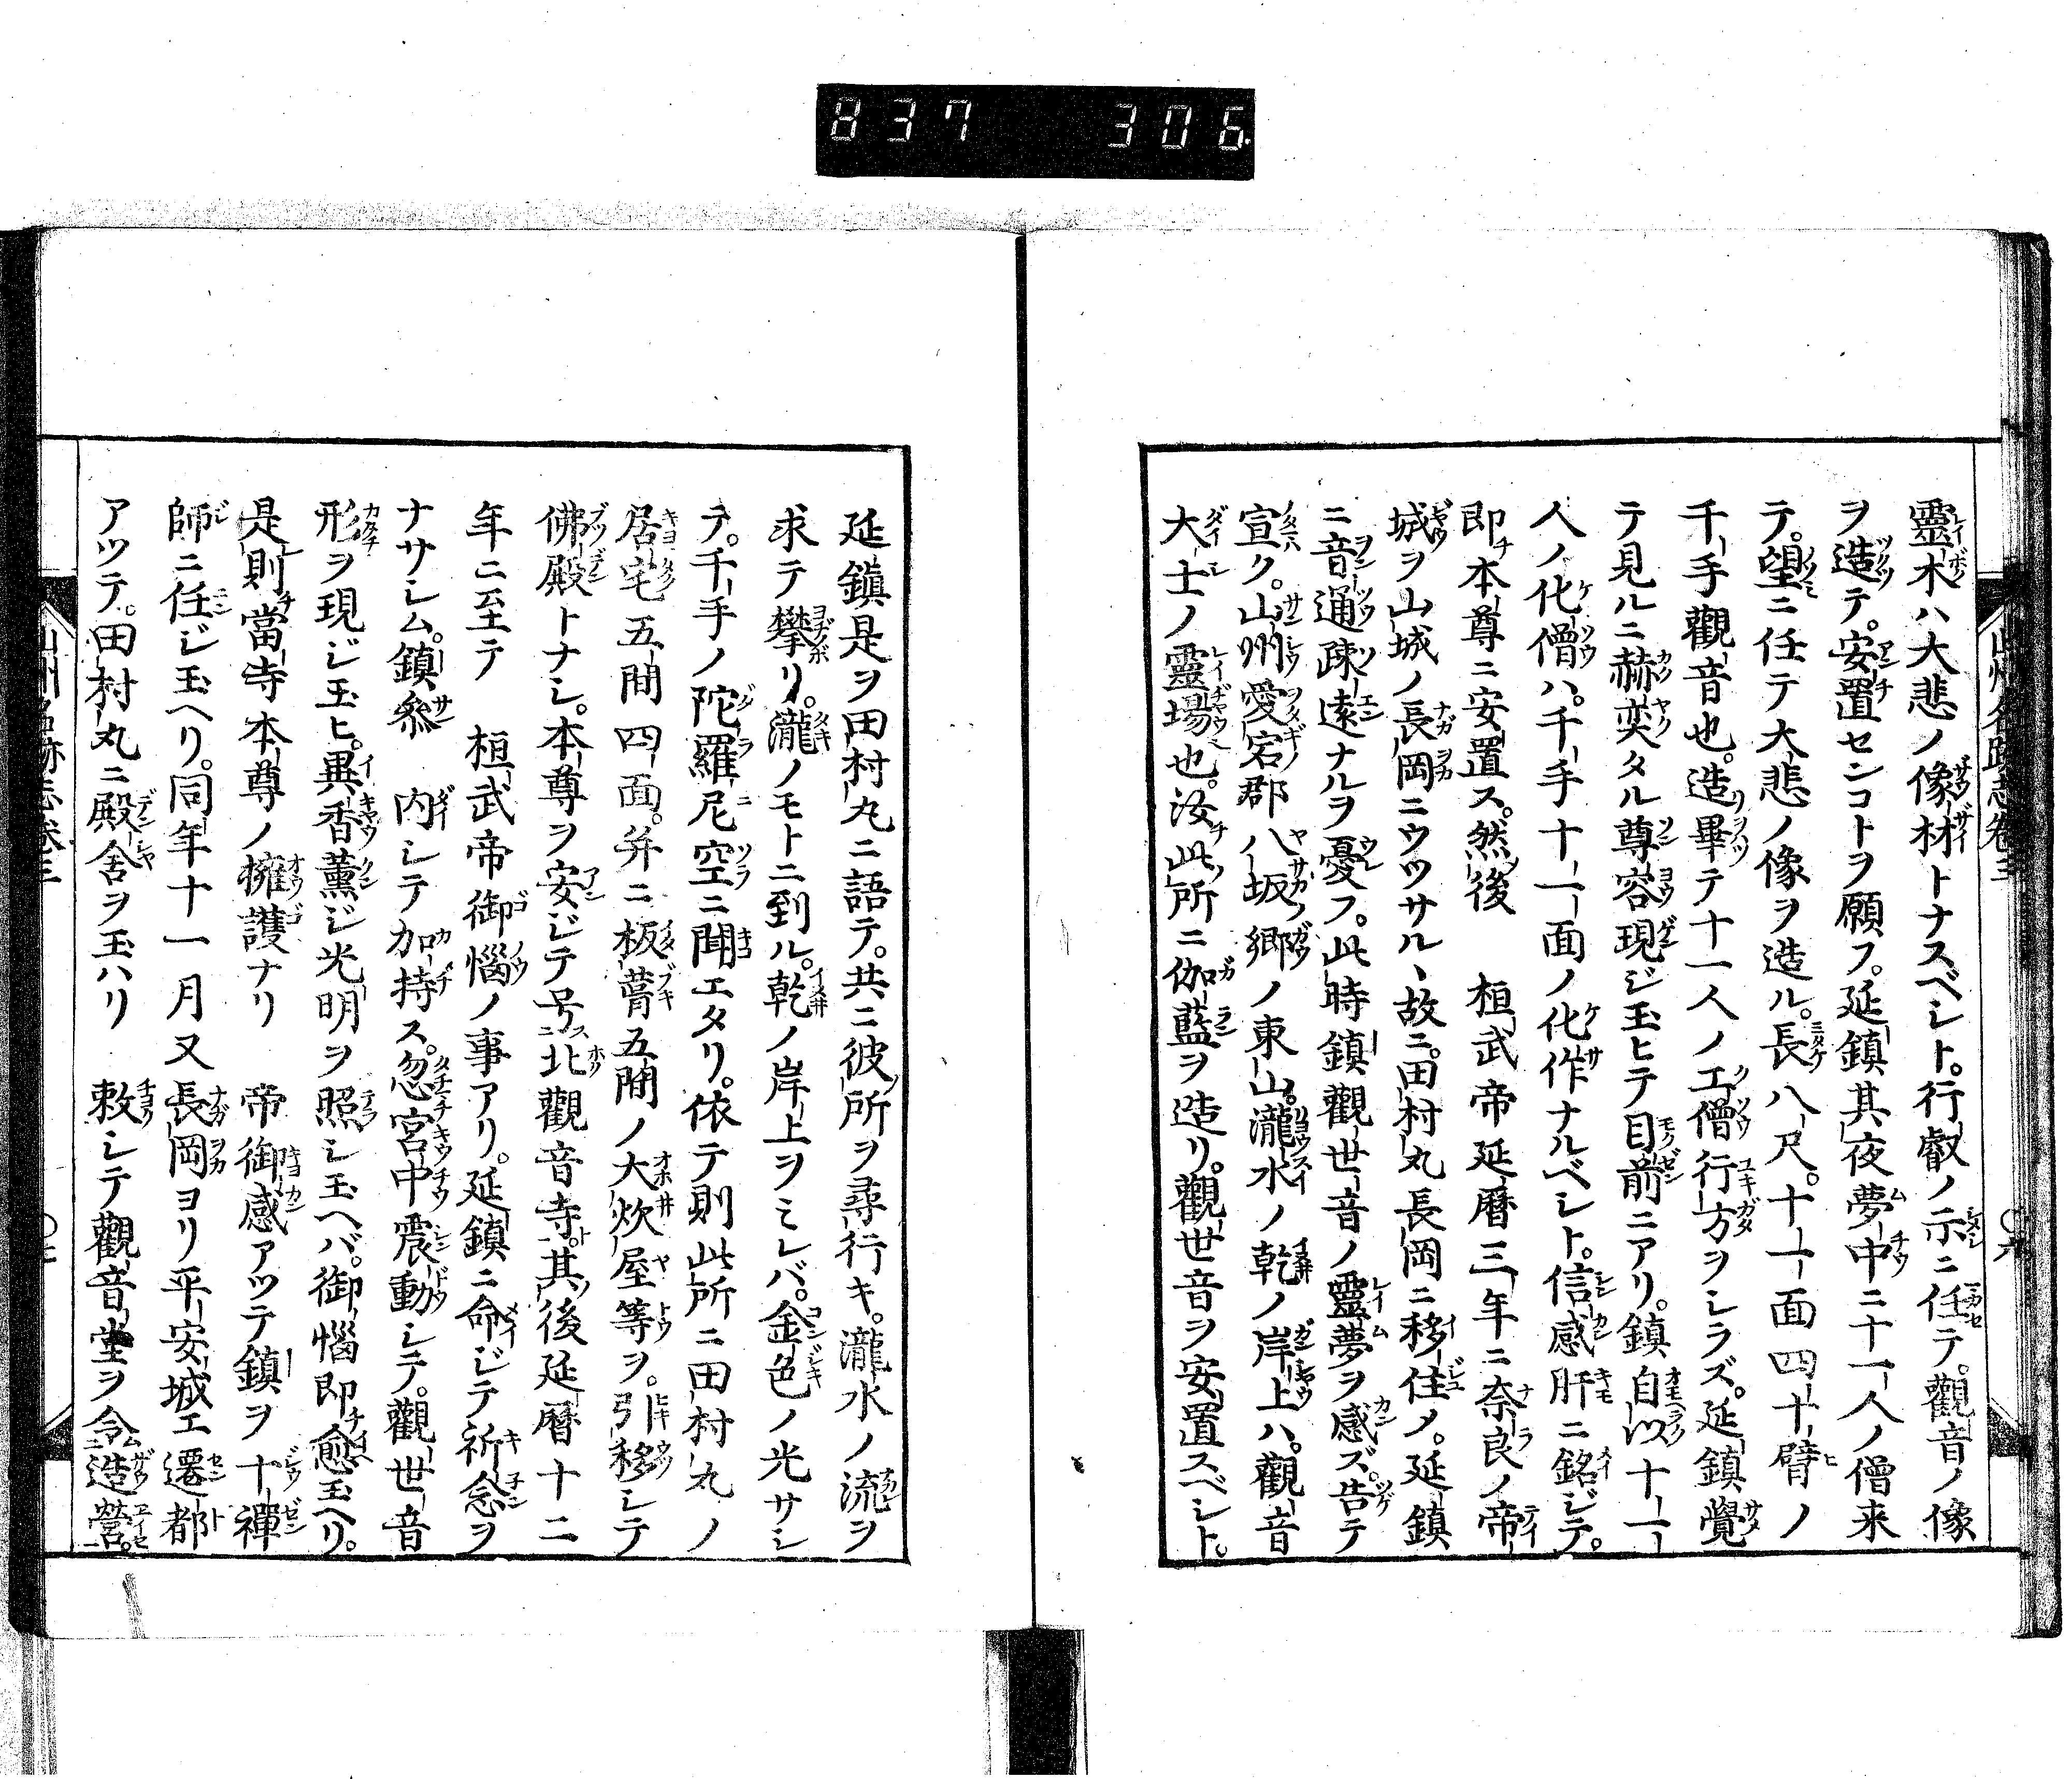 837 306
山州名跡志巻三
靈木ハ大悲ノ像材トナスベシト。行叡ノ示ニ任テ。觀音ノ像
ヲ造テ。安置センコトヲ願フ。延鎮其夜夢中ニ十一人ノ僧来
テ。望ニ任テ大悲ノ像ヲ造ル。長八尺。十一面四十臂ノ
千手觀音也。造畢テ十一人ノ工僧行方ヲシラズ。延鎮覺
テ見ルニ赫奕タル尊容現ジ玉ヒテ目前ニアリ。鎮自以十一
人ノ化僧ハ。千手十一面ノ化作ナルベシト。信感肝ニ銘ジテ。
即チ本尊ニ安置ス。然後 桓武帝延暦三年ニ奈良ノ帝
城ヲ山城ノ長岡ニウツサルヽ故ニ。田村丸長岡ニ移住ノ。延鎮
ニ音通疎遠ナルヲ憂フ。此時鎮觀世音ノ靈夢ヲ感ズ。告テ
宣ク。山州愛宕郡八坂郷ノ東山。瀧水ノ乾ノ岸上ハ。觀音
大士ノ靈場也。汝チ此所ニ伽藍ヲ造リ。觀世音ヲ安置スベシト。
延鎮是ヲ田村丸ニ語テ。共ニ彼所ヲ尋行キ。瀧水ノ流ヲ
求テ攀リ。瀧ノモトニ到ル。乾ノ岸上ヲミレバ。金色ノ光サシ
テ。千手ノ陀羅尼空ニ聞エタリ。依テ則此所ニ田村丸ノ
居宅五間四面。并ニ板葺五間ノ大炊屋等ヲ。引移シテ
佛殿トナシ。本尊ヲ安ジテ号ス北觀音寺ト。其後延暦十二
年ニ至テ 桓武帝御惱ノ事アリ。延鎮ニ命ジテ祈念ヲ
ナサシム。鎮參 内シテ加持ス。忽宮中震動シテ。觀世音
形ヲ現ジ玉ヒ。異香薫ジ光明ヲ照シ玉ヘバ。御惱即チ愈玉ヘリ。
是則チ當寺本尊ノ擁護ナリ 帝御感アツテ鎮ヲ十禪
師ニ任ジ玉ヘリ。同年十一月又長岡ヨリ平安城エ遷都
アツテ。田村丸ニ殿舎ヲ玉ハリ 敕シテ觀音堂ヲ令造營。
山州名跡志巻三